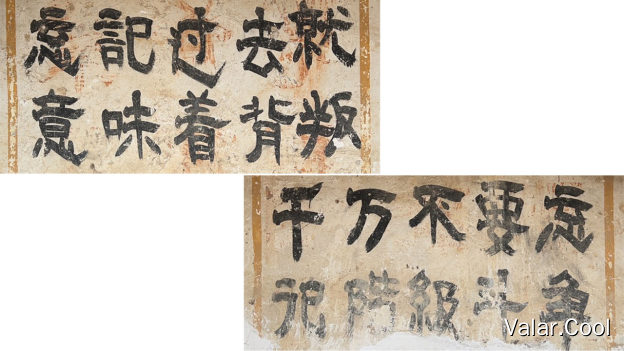 忘記过去就
意味着背叛
千万不要忘
记階級斗争
Valar.Cool